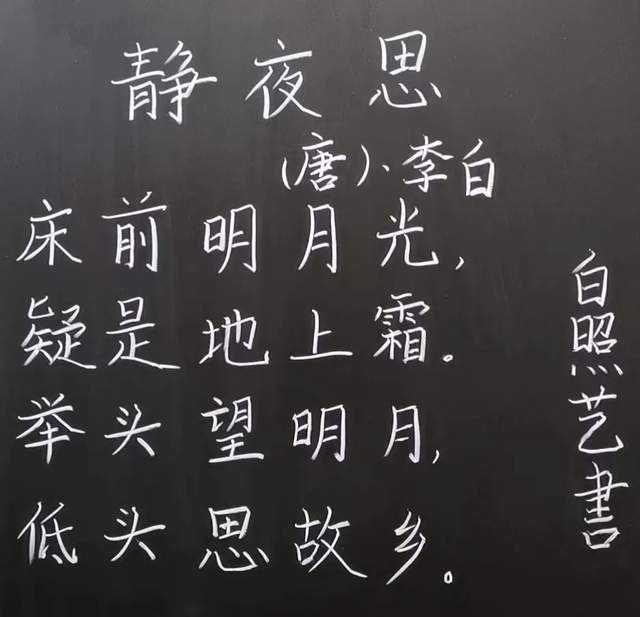 静夜思
(唐)·李白
床前明月光,
疑是地上霜。
举头望明月,
低头思故乡。
白照艺書